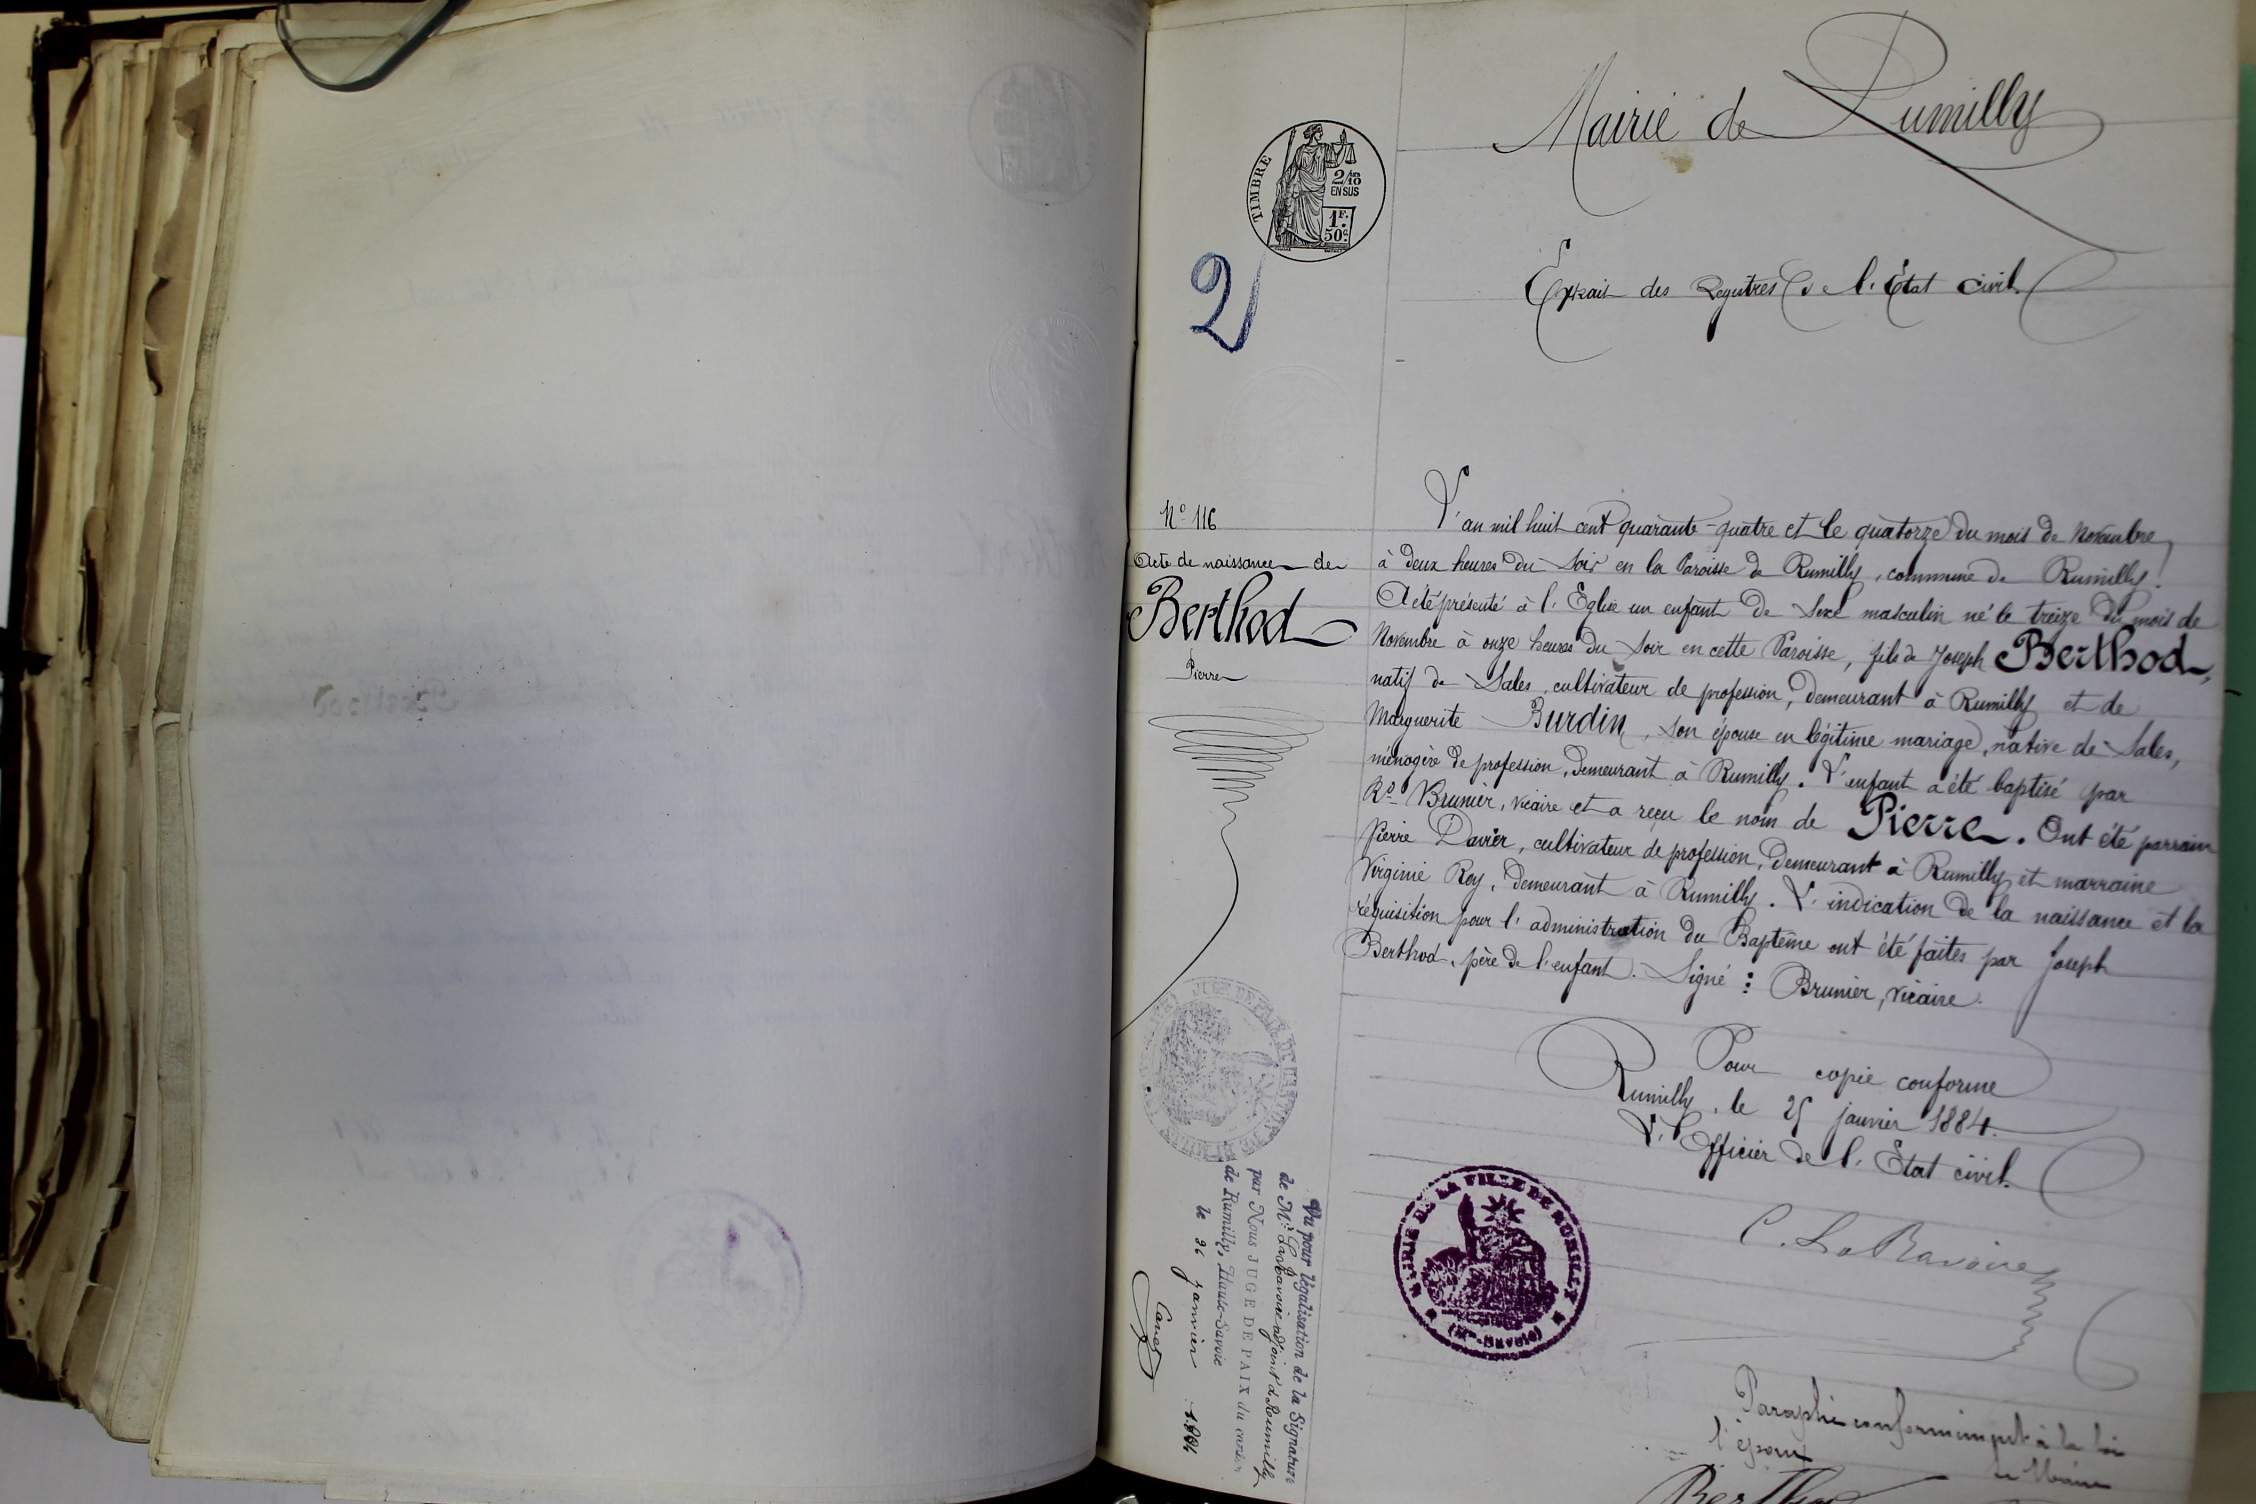 Mairie de Rumilly
TIMBRE
2/10
EN SUS
1F.
50c.
2
Extrait des Registres de l'Etat civil.
No 116
Acte de naissance de
Berthod
Pierre
L'an mil huit cent quarante-quatre et le quatorze du mois de Novembre,
à deux heures du soir en la Paroisse de Rumilly, commune de Rumilly.
A été présenté à l'Eglise un enfant de sexe masculin né le treize du mois de
Novembre à onze heures du soir en cette Paroisse, fils de Joseph Berthod,
natif de Sales, cultivateur de profession, demeurant à Rumilly et de
Marguerite Burdin, son épouse en légitime mariage, native de Sales,
ménagère de profession, demeurant à Rumilly. L'enfant a été baptisé par
Rd Brunier, vicaire et a reçu le nom de Pierre. Ont été parrain
Pierre Davier, cultivateur de profession, demeurant à Rumilly et marraine
Virginie Rey, demeurant à Rumilly. L'indication de la naissance et la
réquisition pour l'administration du Baptême ont été faites par Joseph
Berthod, père de l'enfant. Signé : Brunier, vicaire.
Pour copie conforme
Rumilly, le 25 janvier 1884.
L'Officier de l'Etat civil.
C. La Ravoire
MAIRIE DE LA VILLE DE RUMILLY
JUGE DE PAIX DU CANTON DE RUMILLY
Vu pour légalisation de la Signature
de Mr. La Ravoire adjoint de Rumilly
par Nous JUGE DE PAIX du canton
de Rumilly, Haute-Savoie
le 26 janvier 1884
Paraphé conformément à la loi
l'époux le Maire
Berthod